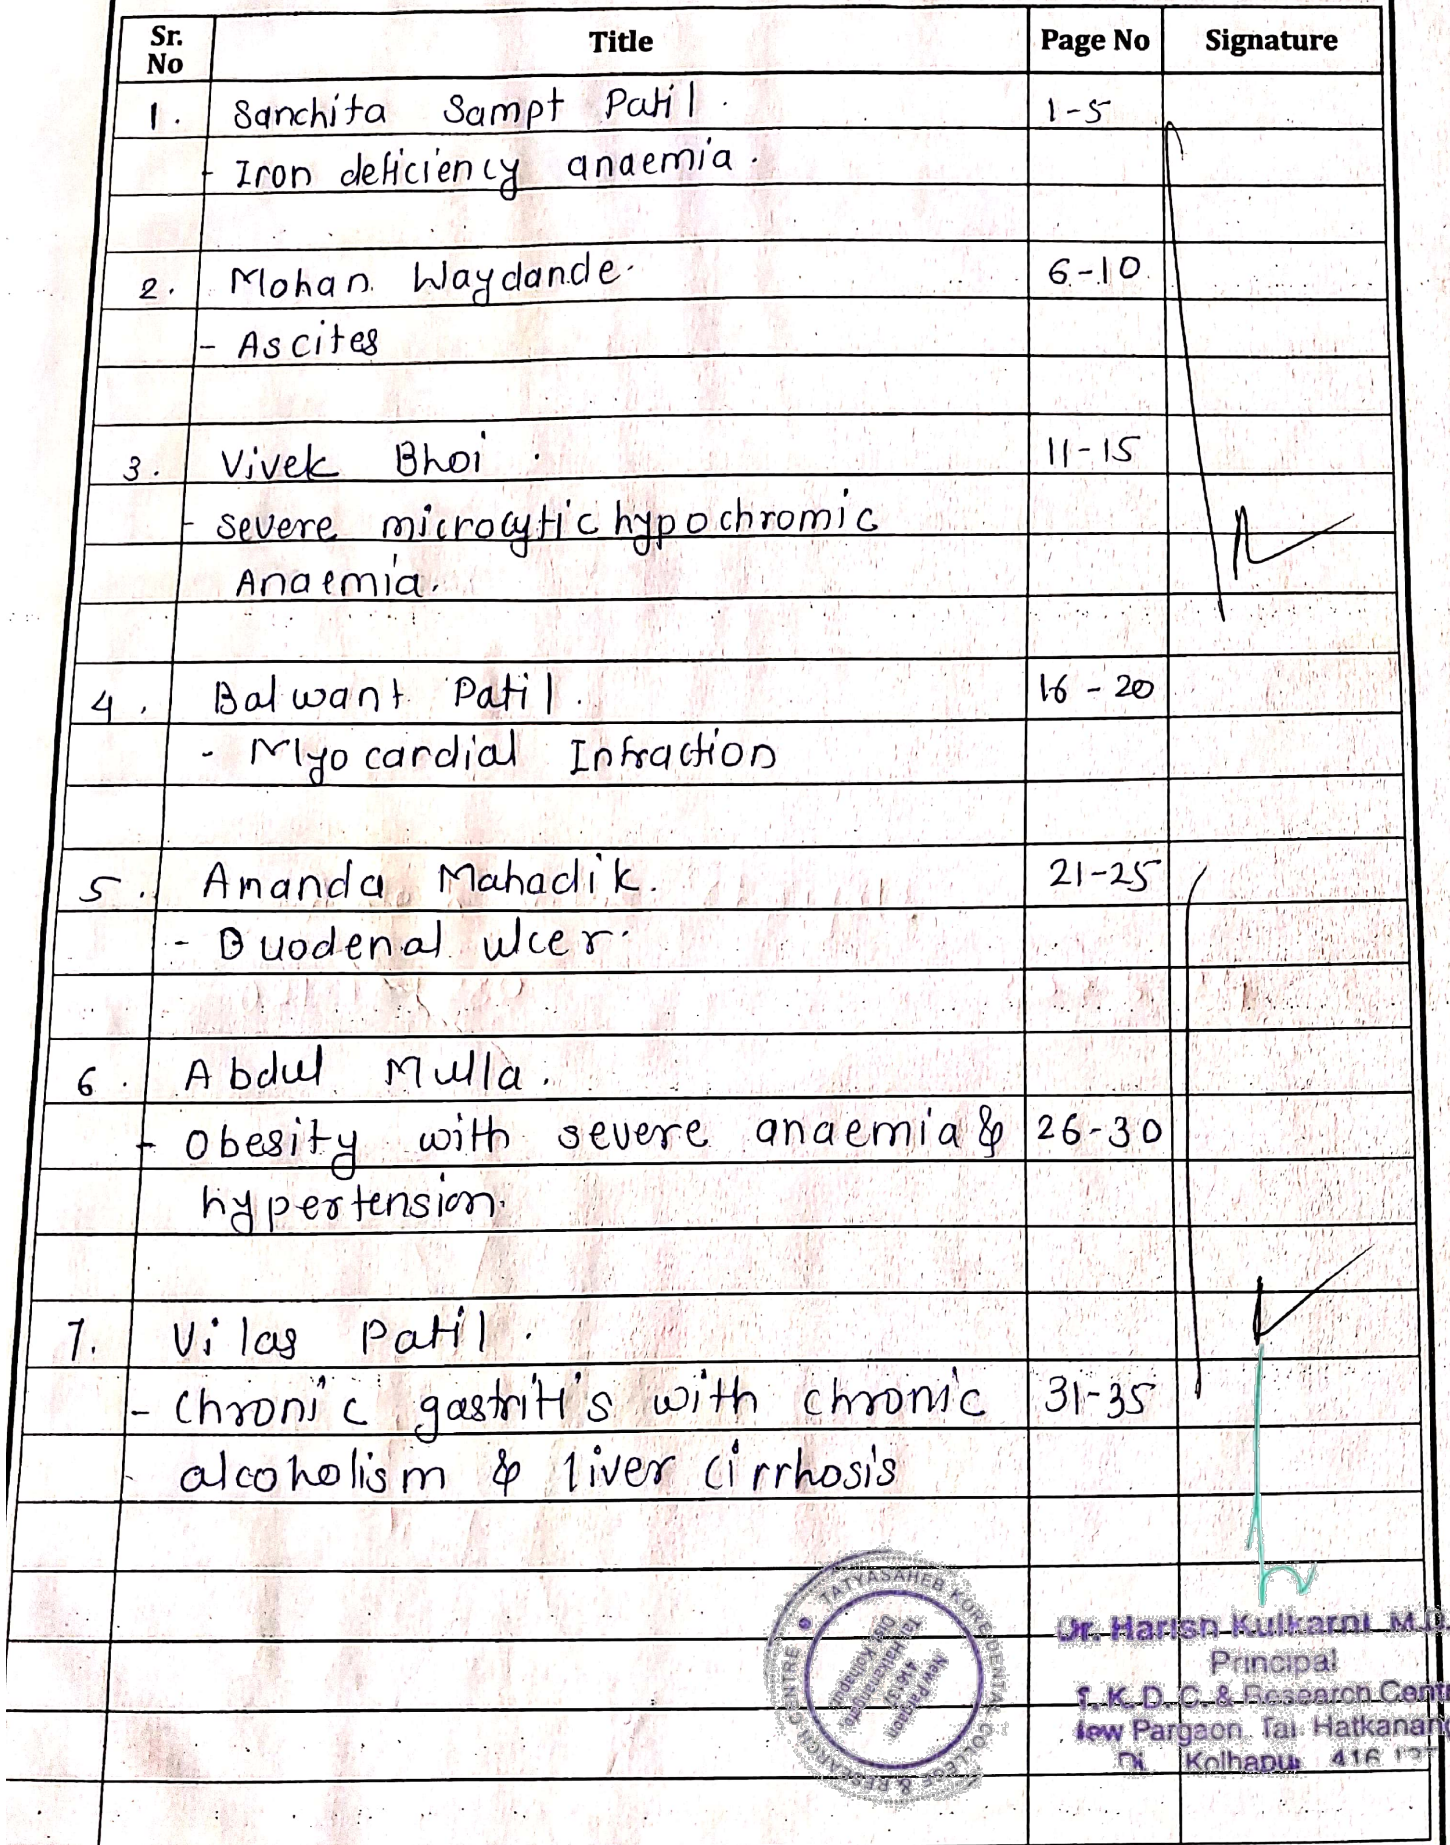 Sr. No Title Page No Signature
1. Sanchita Sampt Patil. 1-5
- Iron deficiency anaemia.
2. Mohan Waydande. 6-10
- Ascites
3. Vivek Bhoi. 11-15
- severe microcytic hypochromic
Anaemia.
4. Balwant Patil. 16-20
- Myocardial Infraction
5. Ananda Mahadik. 21-25
- Duodenal ulcer.
6. Abdul Mulla.
- Obesity with severe anaemia & 26-30
hypertension.
7. Vilas Patil.
- Chronic gastritis with chronic 31-35
alcoholism & liver cirrhosis
TATYASAHEB KORE DENTAL COLLEGE & RESEARCH CENTRE
New Pargaon
416 137
Tal. Hatkanangale
Dist. Kolhapur
Dr. Harish Kulkarni M.D.
Principal
T. K. D. C. & Research Cent
New Pargaon Tal Hatkanan
Di Kolhapur 416 137